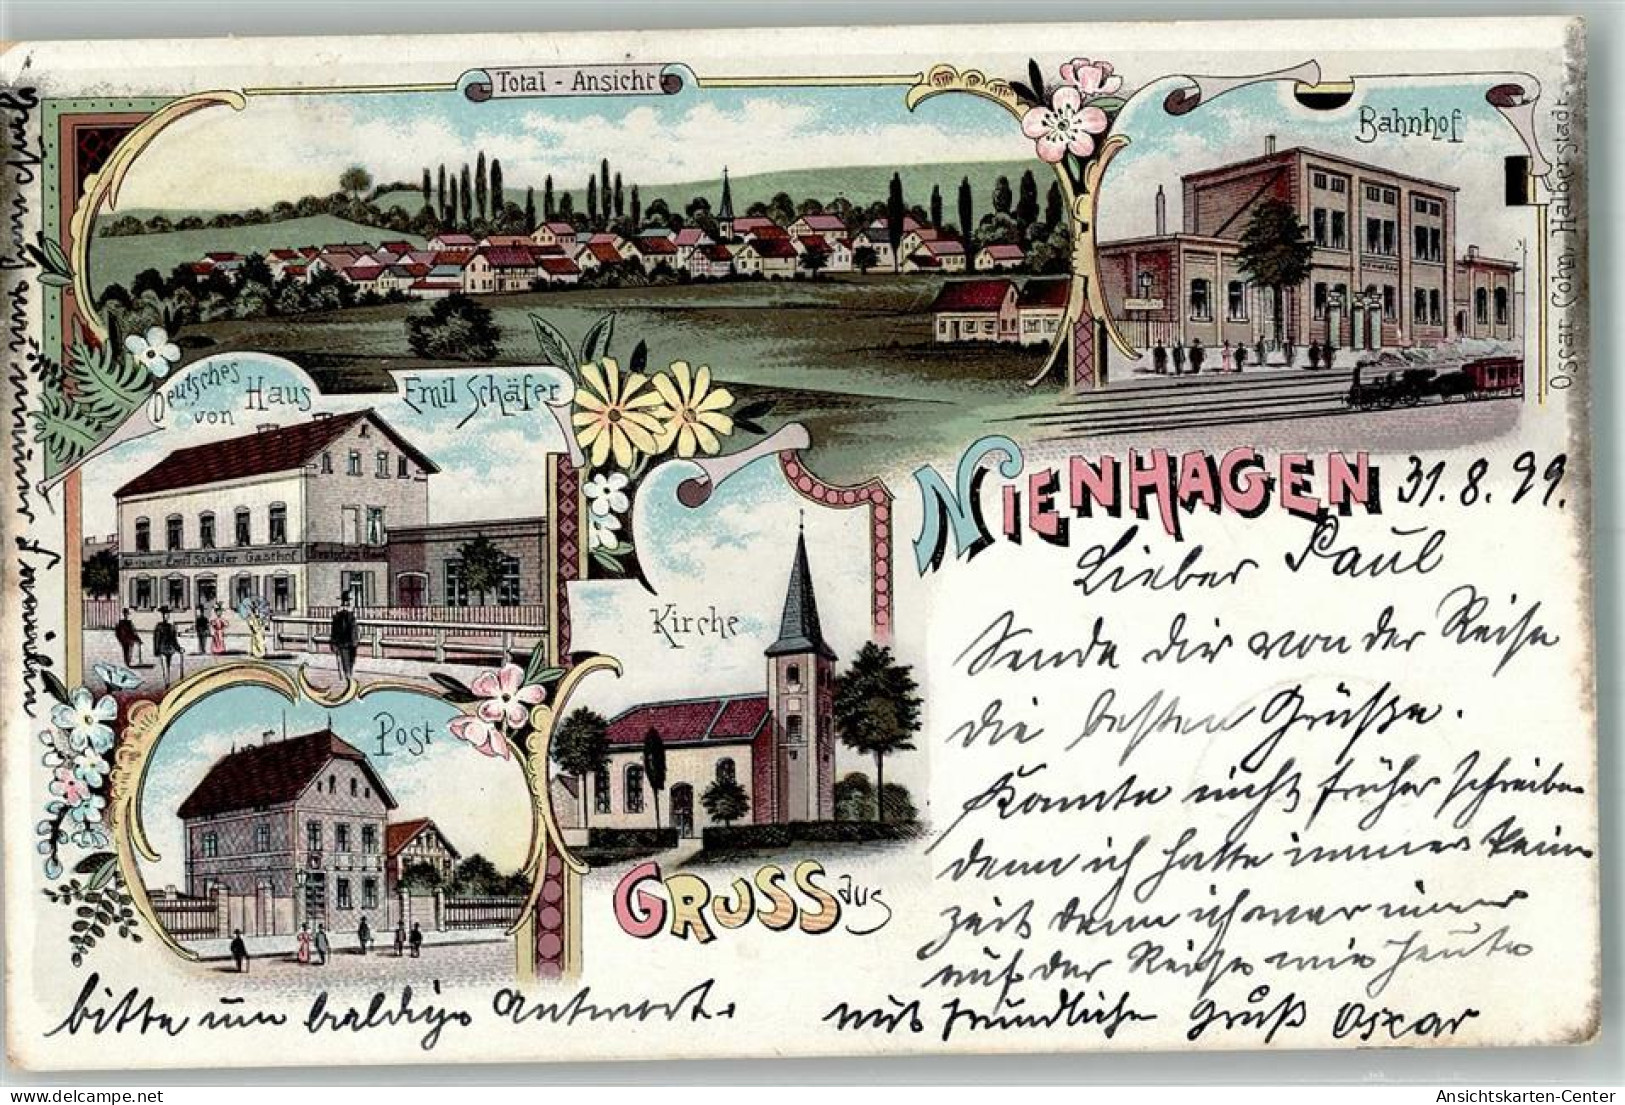 Total - Ansicht
Bahnhof
Oscar Cohn, Halberstadt.
Deutsches Haus
von
Emil Schäfer
Emil Schäfer Gasthof
Kirche
Post
GRUSS aus
NIENHAGEN
31. 8. 99.
Lieber Paul
Sende dir von der Reise
die besten Grüße.
Konnte nicht früher schreiben
denn ich hatte immer keine
zeit denn ich war immer
auf der Reise wie heute
mit freundlichen Gruß Oscar
bitte um baldige Antwort.
Ansichtskarten-Center
www.delcampe.net